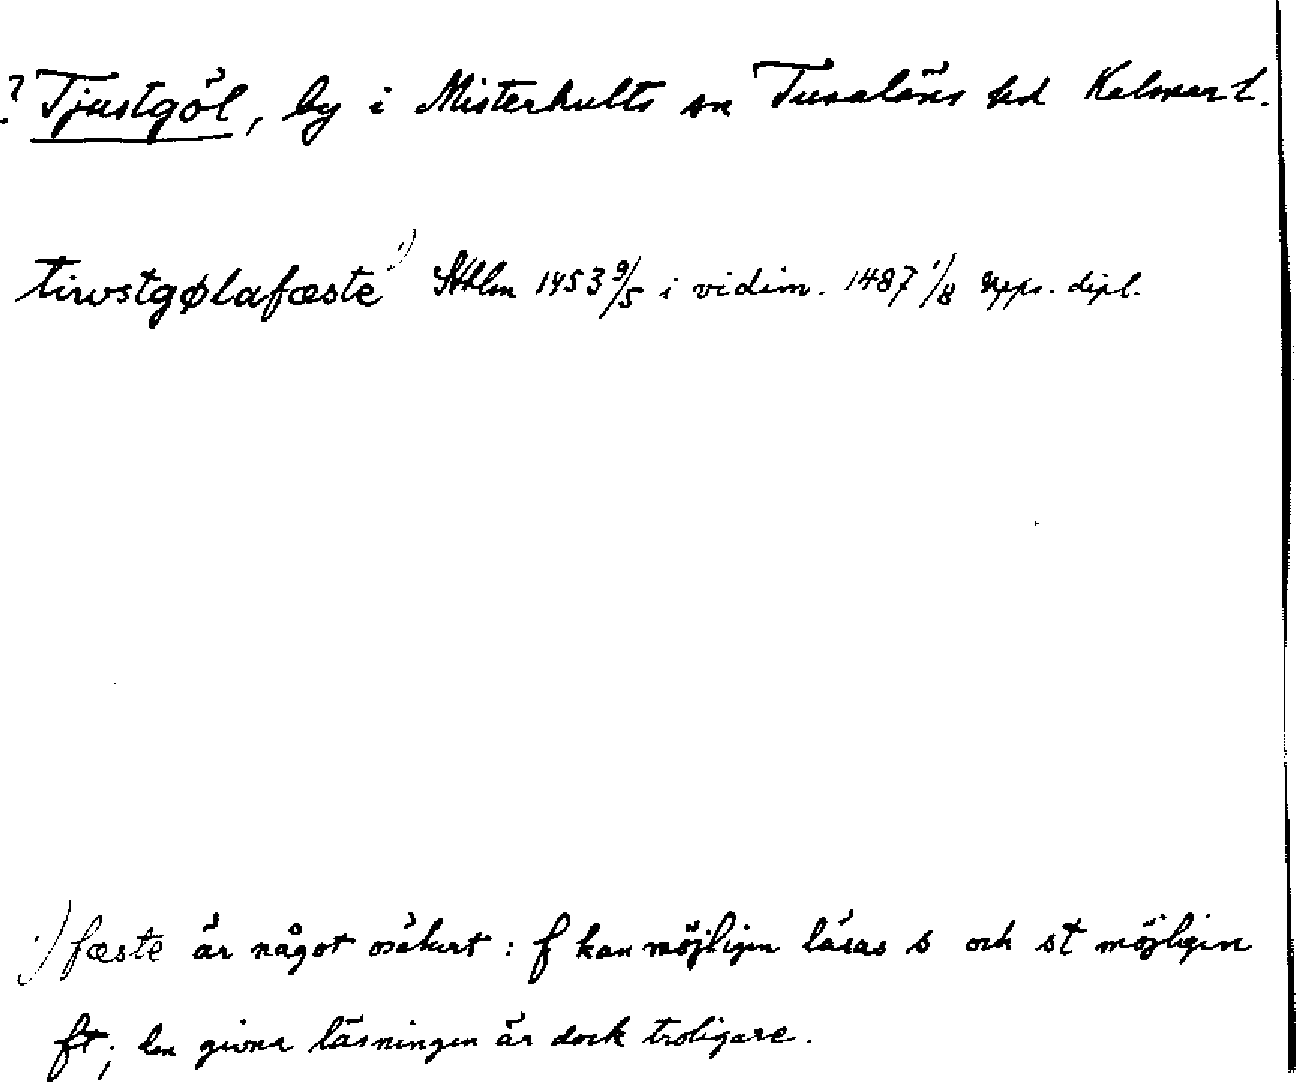 ? Tjustgöl, by i Misterhults sn Tunaläns hd Kalmar l.
tiwstgølafæste 1) Sthlm 1453 9/5 i vidim. 1487 1/8 Upps. dipl.
1) fæste är något osäkert : f kan möjligen läsas s och st möjligen
ft; den givna läsningen är dock troligare.